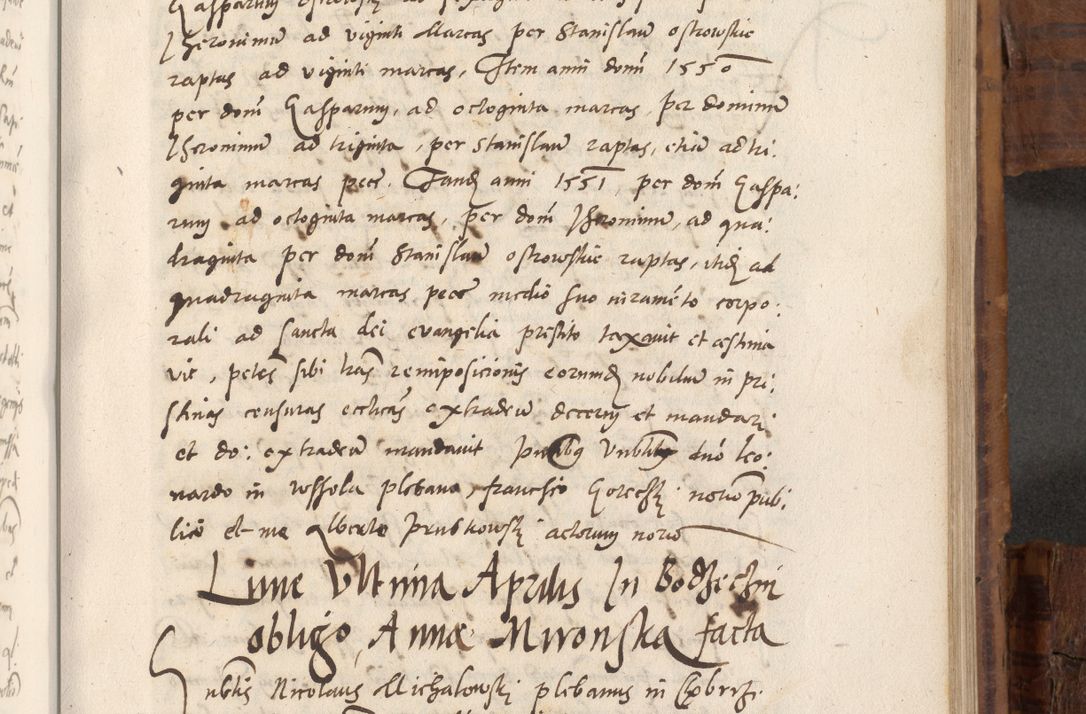 Jheronimum ad viginti Marcas per Stanislaum ostrowskie
raptas ad viginti marcas, Item anni domi 1550
per dom Gasparum, ad octoginta marcas, per dominum
Jheronimum ad triginta, per Stanislaum raptas, etiam ad tri:
ginta marcas pece. Tand anni 1551, per dom Gaspa:
rum ad octoginta marcas, per dom Jheronimum, ad qua:
draginta per dom Stanislaum ostrowskie raptas, itid ad
quadraginta marcas pece medio suo iuramento corpo:
rali ad sancta dei evangelia prestito taxavit et æstima
vit, petens sibi lras reimposicionis eorumd nobilium in pri:
stinas censuras ecclicas extradi decerni et mandari
et do: extradi mandavit Pntibus Vnblibus dno leo:
nardo in vossola plebano, francisco Goreczky norio publi:
lico et me Alberto Prusskowsky actorum norio
Lune Vltima Aprilis In Bodzeczin
obligo, Annæ Mironska facta
nblis Nicolaus Michalowsky plebanus in